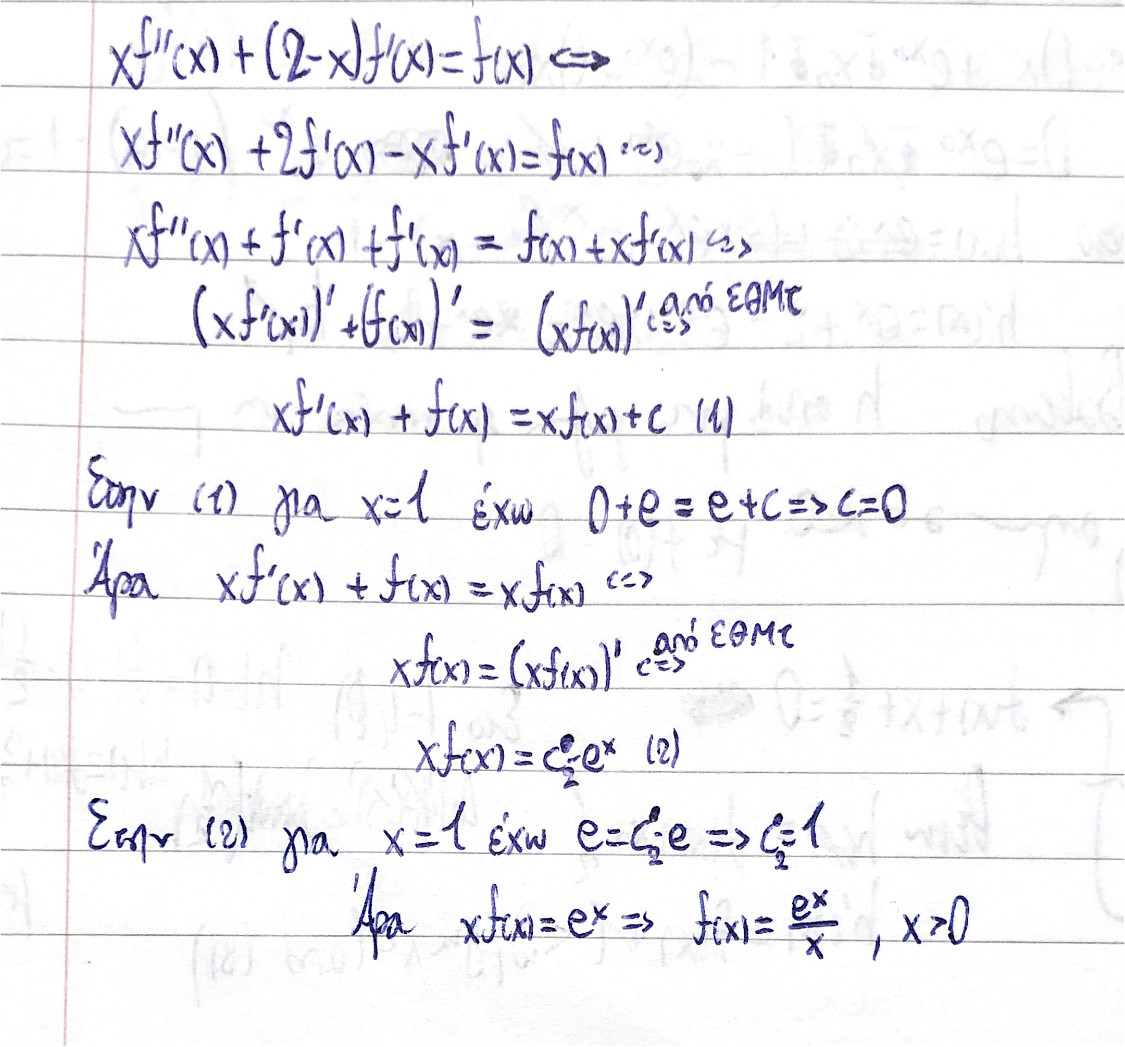 xf''(x) + (2-x)f'(x) = f(x) <=>
xf''(x) + 2f'(x) - xf'(x) = f(x) <=>
xf''(x) + f'(x) + f'(x) = f(x) + xf'(x) <=>
(xf'(x))' + (f(x))' = (xf(x))' <=> από ΕΘΜΤ
xf'(x) + f(x) = xf(x) + c (1)
Στην (1) για x=1 έχω 0+e = e+c => c=0
Άρα xf'(x) + f(x) = xf(x) <=>
xf(x) = (xf(x))' <=> από ΕΘΜΤ
xf(x) = c₂·e^x (2)
Στην (2) για x=1 έχω e = c₂·e => c₂=1
Άρα xf(x) = e^x => f(x) = e^x/x , x>0